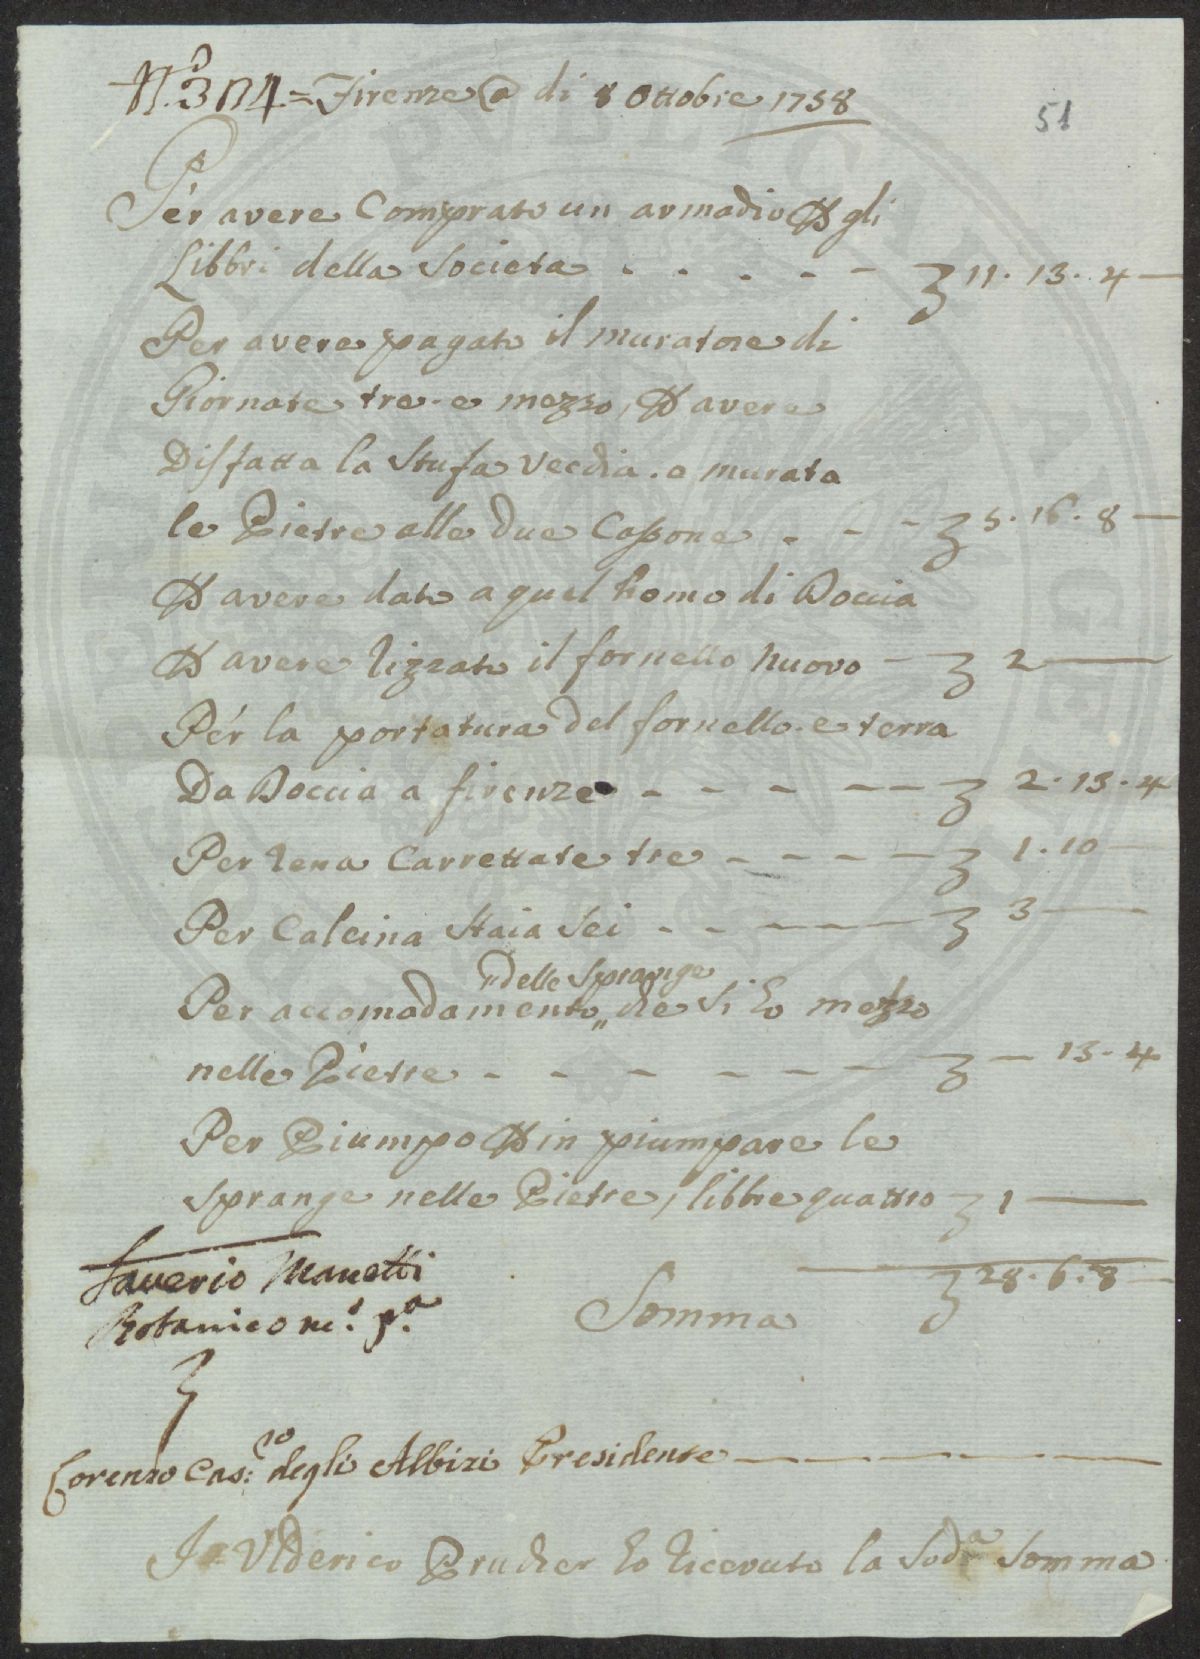 N.º 3 114 = Firenze a di 8 Ottobre 1758
51
Pér avere Comprato un armadio P gli
Libbri della Societa - - - - - 11. 13. 4
Per avere pagato il muratore di
Giornate tre e mezzo, P avere
Disfatta la Stufa Vecchia. e murata
le Pietre alle due Cassone - - - 5. 16. 8
P avere dato a quel homo di Doccia
P avere rizzato il fornello nuovo - 2
Pér la portatura del fornello. e terra
Da Doccia a firenze - - - - - 2. 13. 4
Per rena Carrettate tre - - - - 1. 10
Per Calcina Staia Sei - - - - 3
"delle Sprange
Per accomodamento „ che si ho mezzo
nelle Pietre - - - - - - - 13. 4
Per Piumpo P in piumpare le
Sprange nelle Pietre, libbre quattro 1
Saverio Manetti
Botanico m.º p.ª
Somma 28. 6. 8
Lorenzo Cas:ro degli Albizi Presidente
Io Vlderico Prucher ho ricevuto la Sod.ª Somma
PVBLICAE